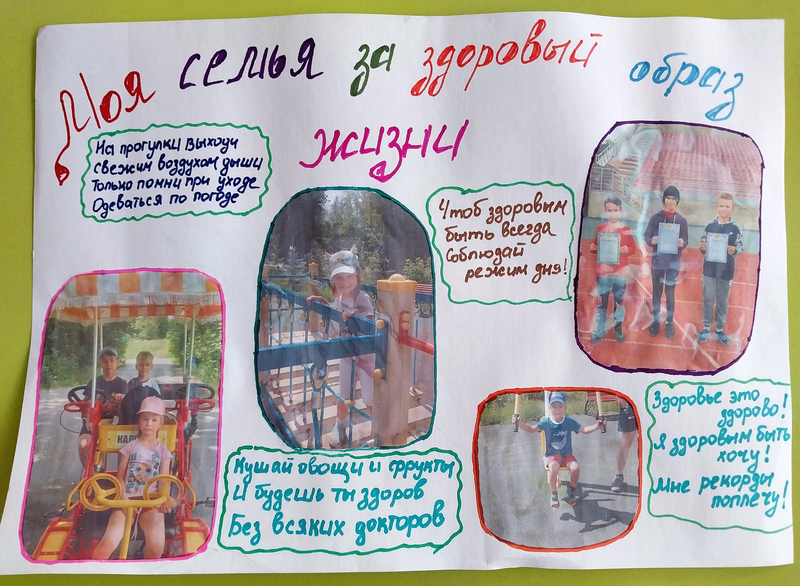 Моя семья за здоровый образ
жизни
На прогулки выходи
свежим воздухом дыши
Только помни при уходе
Одеваться по погоде
Чтоб здоровым
быть всегда
Соблюдай
режим дня!
Кушай овощи и фрукты
И будешь ты здоров
Без всяких докторов
Здоровье это
здорово!
Я здоровым быть
хочу!
Мне рекорды
поплечу!